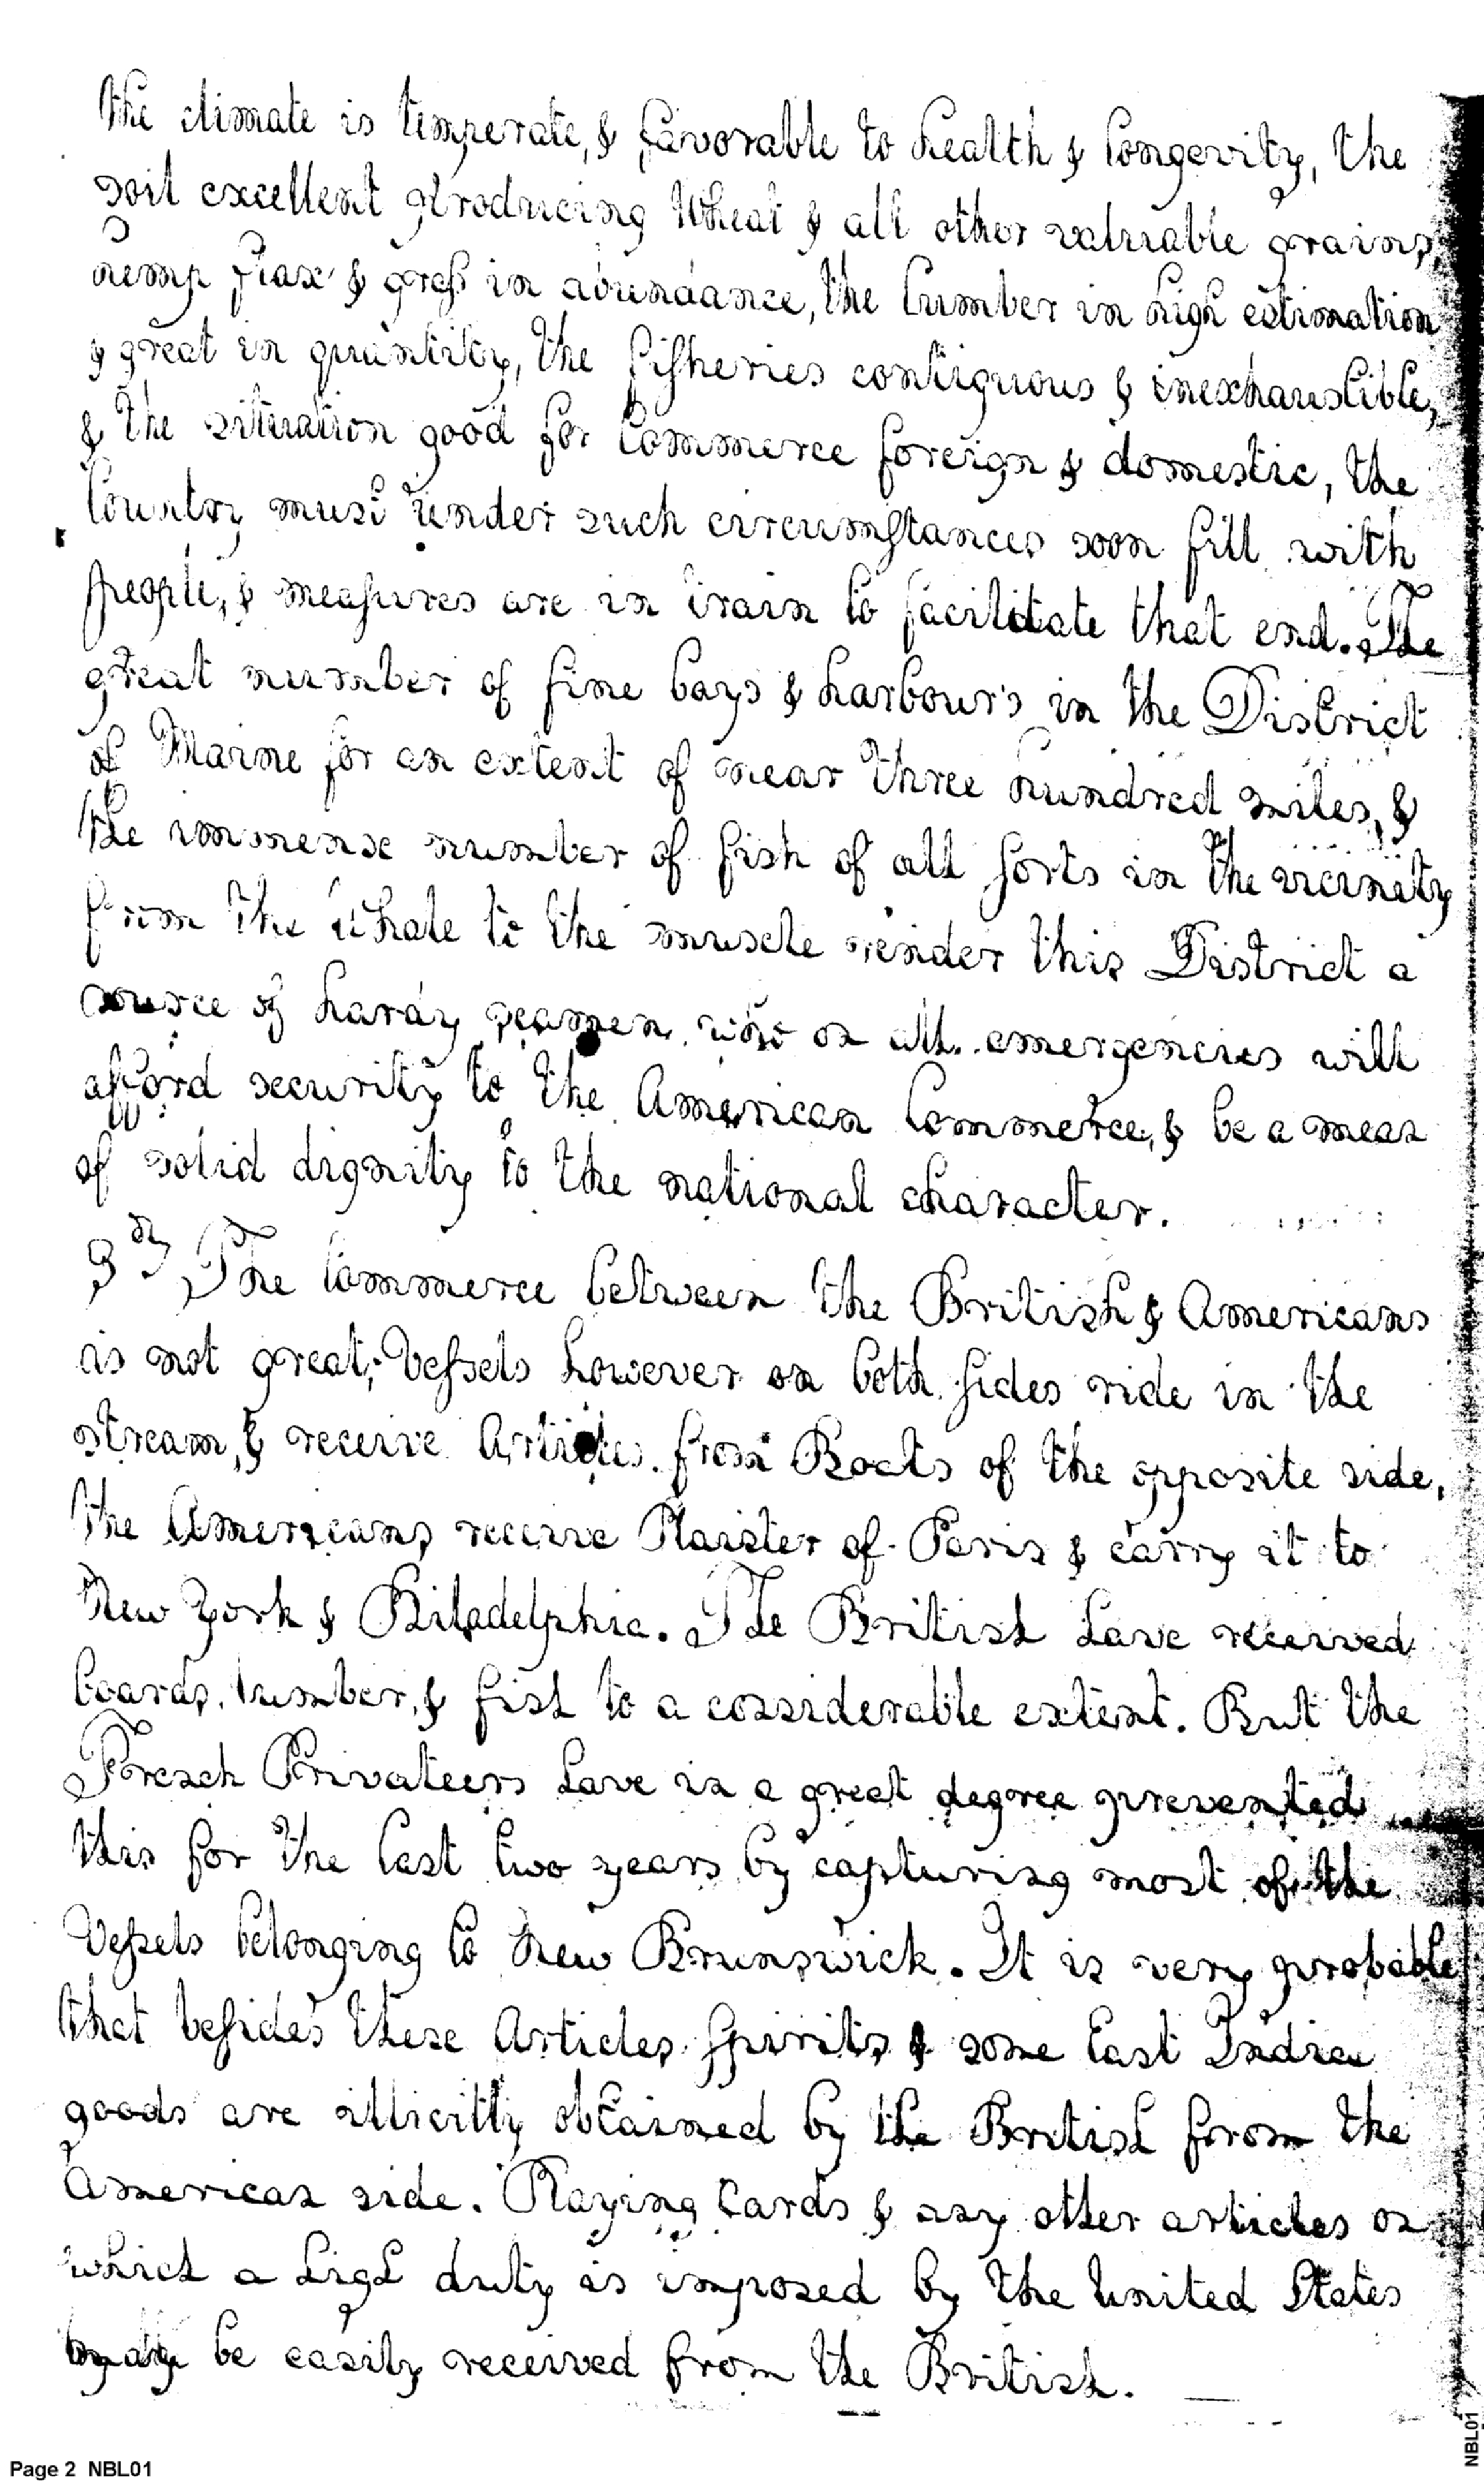 the climate is temperate, & favorable to health & longevity, the
soil excellent producing Wheat & all other valuable grains,
hemp flax & grass in abundance, the lumber in high estimation
& great in quantity, the fisheries contiguous & inexhaustible,
& the situation good for Commerce foreign & domestic, the
Country must under such circumstances soon fill with
people, & measures are in train to facilitate that end. The
great number of fine bays & harbours in the District
of Maine for an extent of near three hundred miles, &
the immense number of fish of all sorts in the vicinity
from the whale to the muscle render this District a
source of hardy seamen, who on all emergencies will
afford security to the American Commerce, & be a mean
of solid dignity to the national character.
3dly The Commerce between the British & Americans
is not great; Vessels however on both sides ride in the
stream, & receive Articles from Boats of the opposite side,
the Americans receive Plaister of Paris & carry it to
New York & Philadelphia. The British have received
boards, lumber, & fish to a considerable extent. But the
French Privateers have in a great degree prevented
this for the last two years by capturing most of the
Vessels belonging to New Brunswick. It is very probable
that besides these Articles Spirits & some East India
goods are illicitly obtained by the British from the
American side. Playing Cards & any other articles on
which a high duty is imposed by the United States
may be easily received from the British.
Page 2 NBL01
NBL01